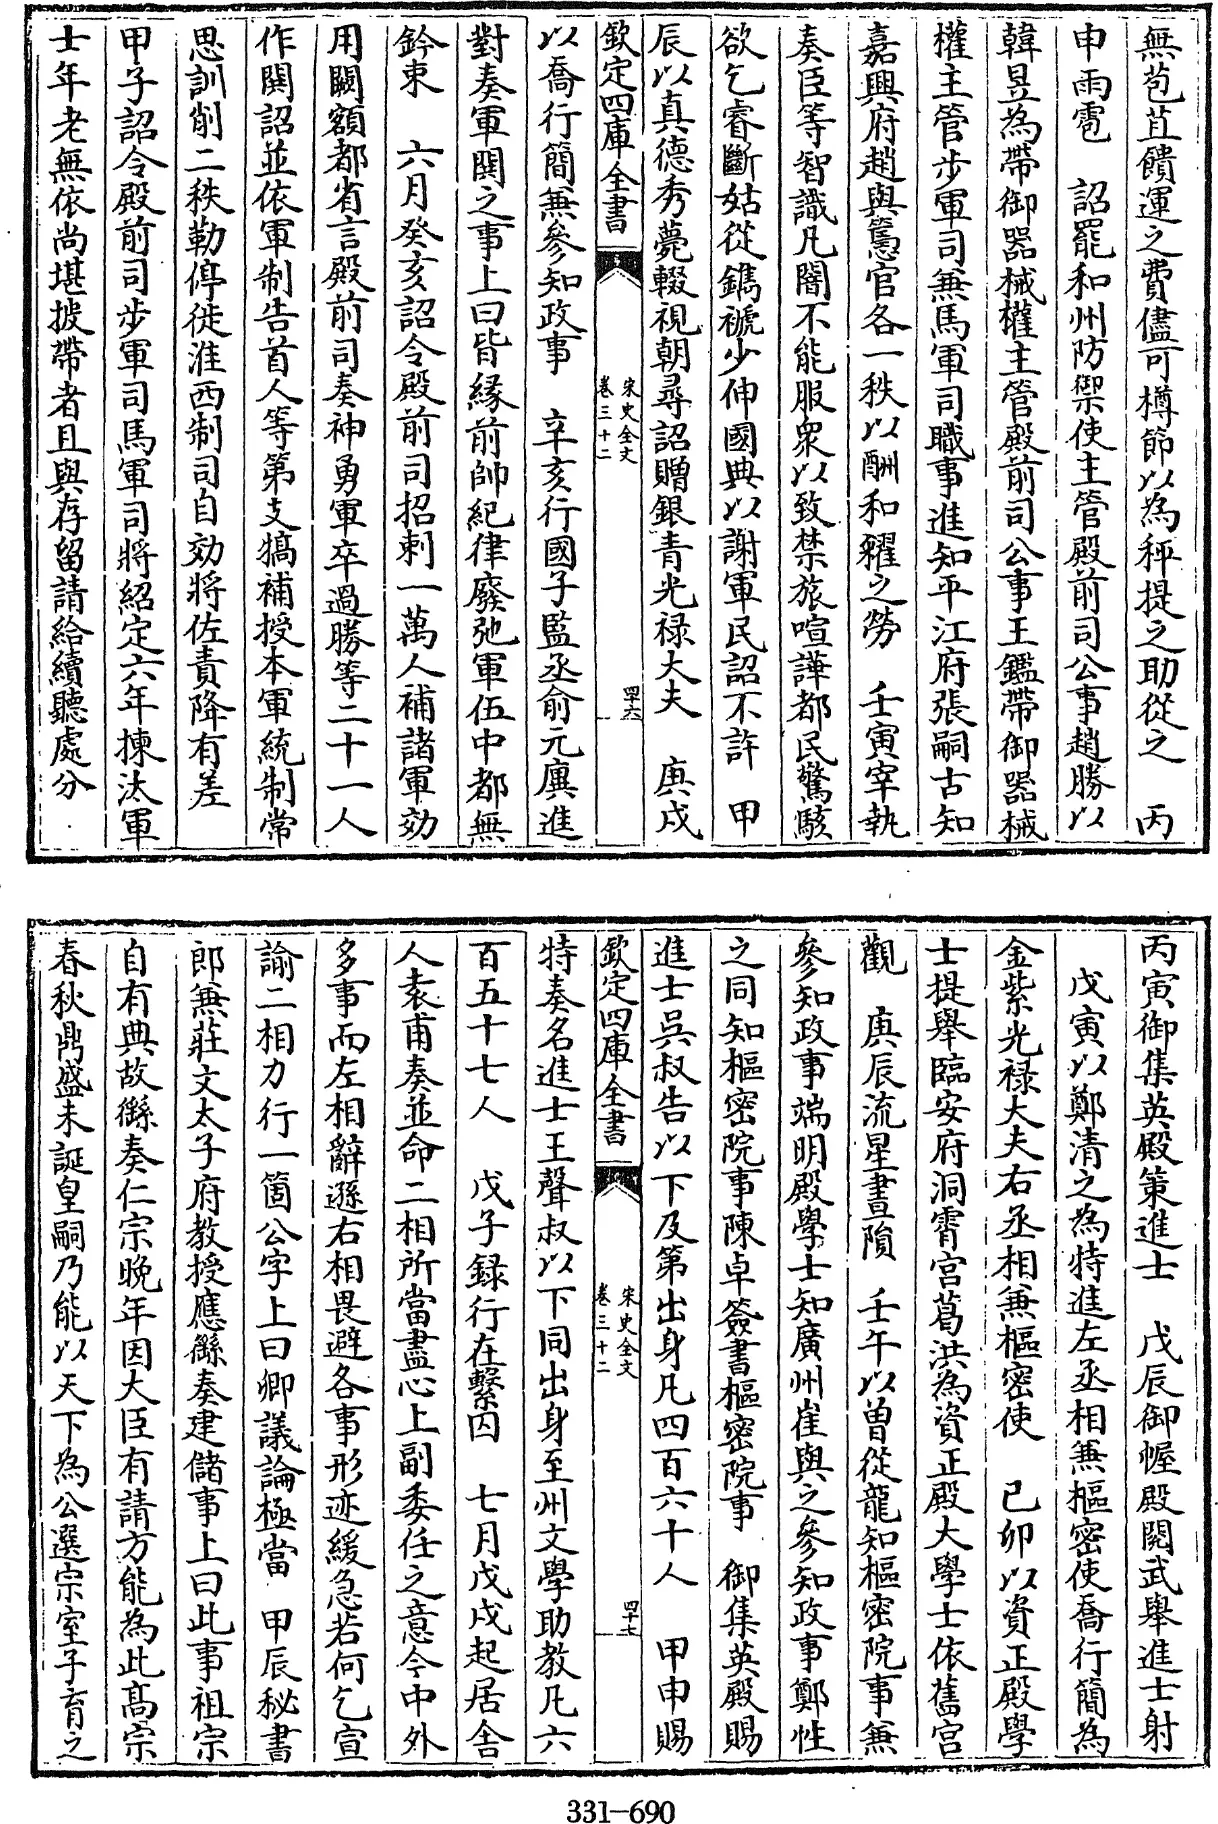 無苞苴饋運之費儘可樽節以為秤提之助從之　丙
申雨雹　詔罷和州防禦使主管殿前司公事趙勝以
韓昱為帶御器械權主管殿前司公事王鑑帶御器械
權主管步軍司兼馬軍司職事進知平江府張嗣古知
嘉興府趙與𥲅官各一秩以酬和糴之勞　壬寅宰執
奏臣等智識凡闇不能服衆以致禁旅喧譁都民驚駭
欲乞睿斷姑從鐫褫少伸國典以謝軍民詔不許　甲
辰以真德秀薨輟視朝尋詔贈銀青光禄大夫　庚戌
欽定四庫全書
宋史全文
卷三十二
四十六
以喬行簡兼參知政事　辛亥行國子監丞俞元廙進
對奏軍鬨之事上曰皆緣前帥紀律廢弛軍伍中都無
鈐束　六月癸亥詔令殿前司招刺一萬人補諸軍効
用闕額都省言殿前司奏神勇軍卒過勝等二十一人
作鬨詔並依軍制告首人等第支犒補授本軍統制常
思訓削二秩勒停徙淮西制司自効將佐責降有差
甲子詔令殿前司步軍司馬軍司將紹定六年揀汰軍
士年老無依尚堪披帶者且與存留請給續聽處分
丙寅御集英殿策進士　戊辰御幄殿閱武舉進士射
戊寅以鄭清之為特進左丞相兼樞密使喬行簡為
金紫光禄大夫右丞相兼樞密使　己卯以資正殿學
士提舉臨安府洞霄宮葛洪為資正殿大學士依舊宮
觀　庚辰流星晝隕　壬午以曾從龍知樞密院事兼
參知政事端明殿學士知廣州崔與之參知政事鄭性
之同知樞密院事陳卓簽書樞密院事　御集英殿賜
進士吳叔告以下及第出身凡四百六十人　甲申賜
欽定四庫全書
宋史全文
卷三十二
四十七
特奏名進士王聲叔以下同出身至州文學助教凡六
百五十七人　戊子録行在繫囚　七月戊戌起居舍
人袁甫奏並命二相所當盡心上副委任之意今中外
多事而左相辭遜右相畏避各事形迹緩急若何乞宣
諭二相力行一箇公字上曰卿議論極當　甲辰秘書
郎兼莊文太子府教授應㒡奏建儲事上曰此事祖宗
自有典故㒡奏仁宗晩年因大臣有請方能為此高宗
春秋鼎盛未誕皇嗣乃能以天下為公選宗室子育之
331-690